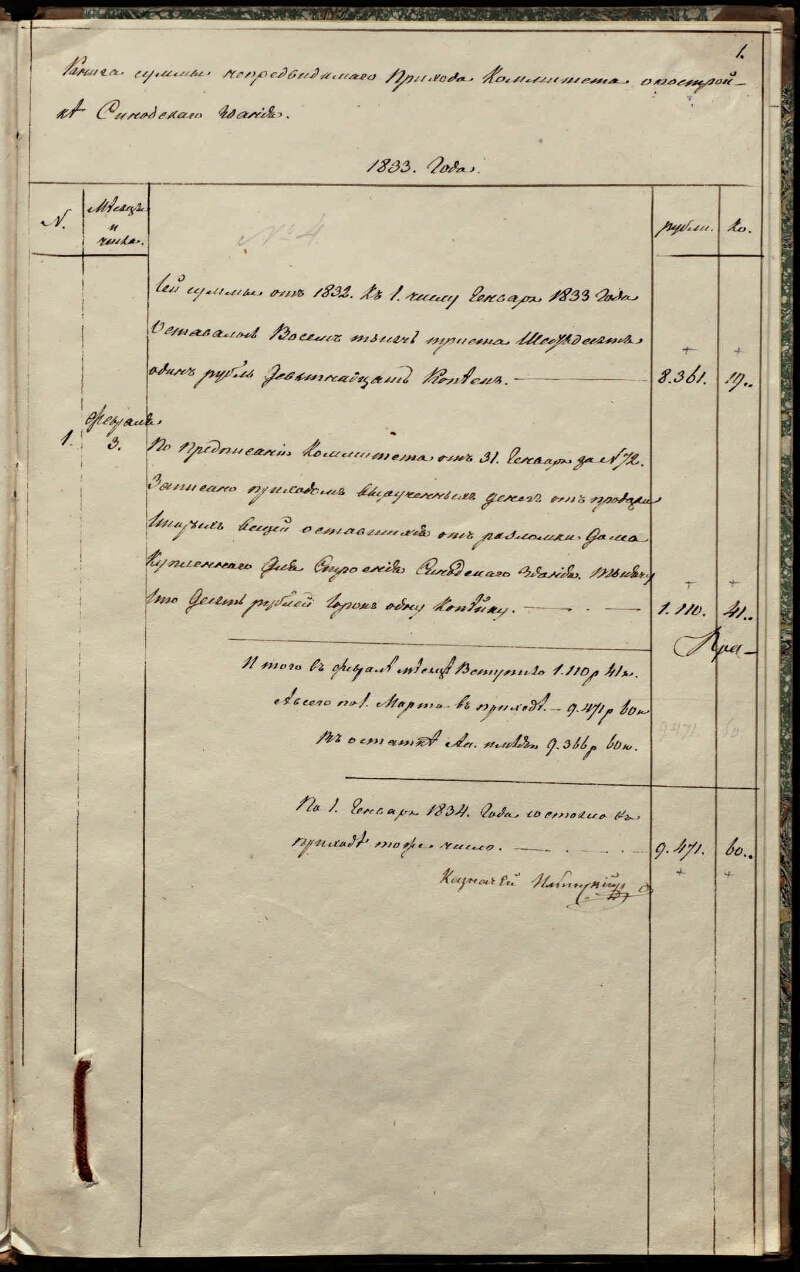 1.
Книга суммы непредвидимаго Прихода Коммитета о построй-
кѣ Синодскаго Зданія.
1833. Года.
N. Мѣсяцъ и числа. рубли. Ко.
№ 4
Сей суммы отъ 1832. Къ 1. числу Генваря 1833 Года
Оставалось Восемь тысячь триста Шестьдесятъ
одинъ рубль Девятнадцать Копѣекъ. 8.361. 19..
Февраля
1. 3. По Предписанію Коммитета отъ 31. Генваря за N 72.
Записано приходомъ вырученныхъ денегъ отъ продажи
Старыхъ вещей оставшихся отъ разломки Дома
Купленнаго Для Строенія Синодскаго Зданія. Тысячу
Сто Десять рублей Сорокъ одну Копѣйку. 1.110. 41..
Итого въ февралѣ мѣсяцѣ Вступило 1.110 р 41 к.
А всего по 1. Марта въ приходѣ. — 9.471 р 60 к
9.471. 60.
Въ остаткѣ 9.366 р 60 к.
По 1. Генваря 1834. Года состояло въ
приходѣ тоже число. 9.471. 60..
Казначей